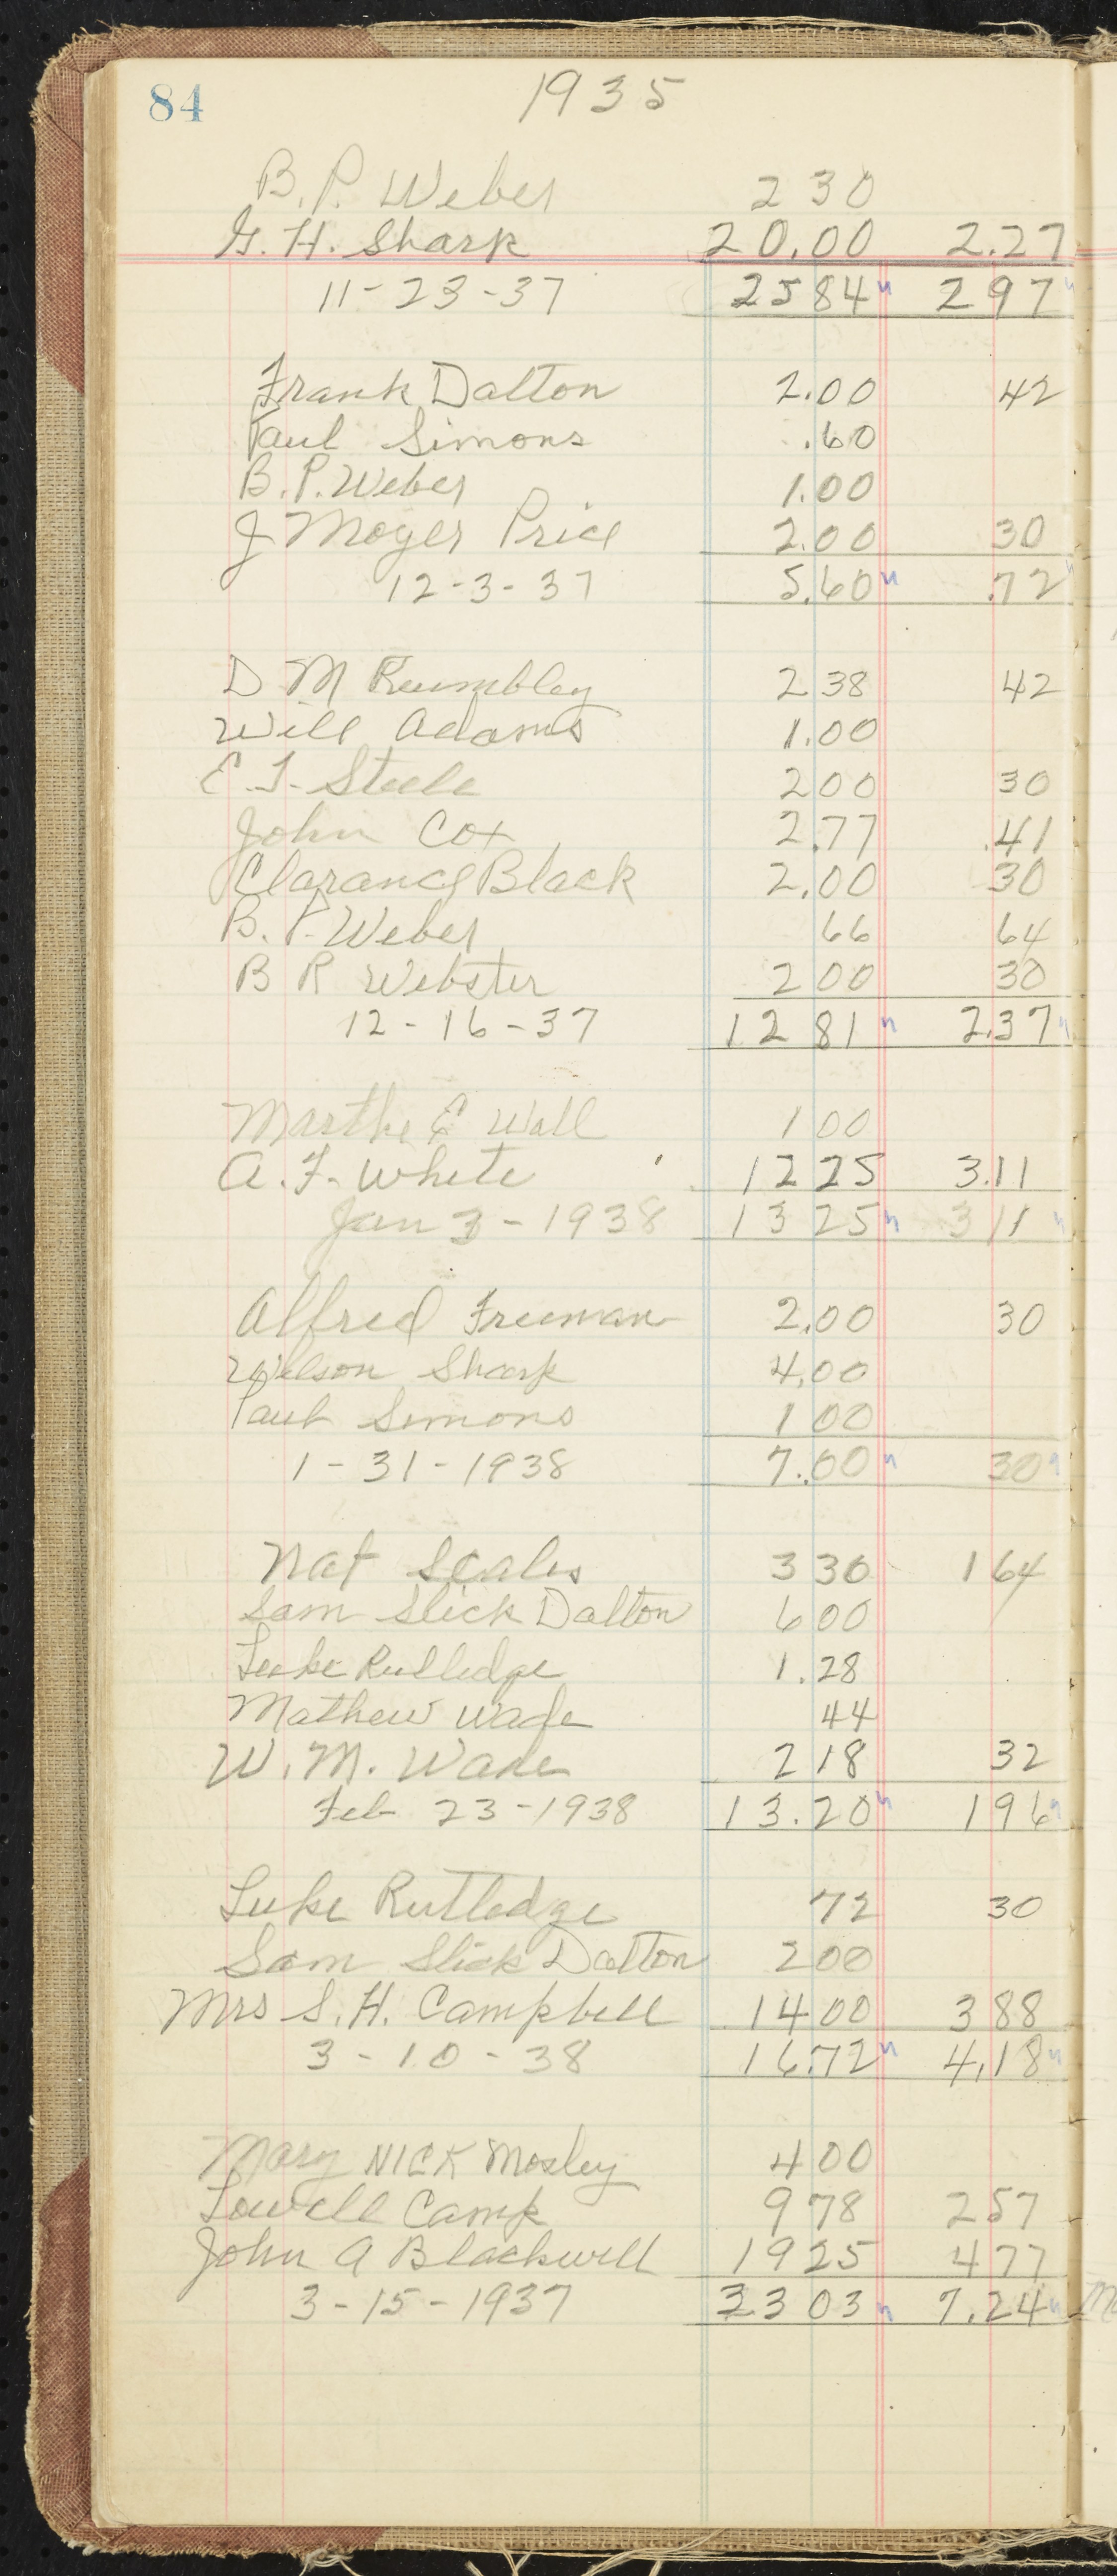 84 1935
B. P. Weber 2 30
G. H. Sharp 20.00 2.27
11-23-37 25 84 2 97
Frank Dalton 2.00 42
Paul Simons .60
B. P. Weber 1.00
J Moyer Price 2.00 30
12-3-37 5.60 .72
D M Rumbley 2 38 42
Will Adams 1.00
E. T. Steele 2 00 30
John Cox 2.77 .41
Clarance Black 2.00 30
B. P. Weber 66 64
B R Webster 2 00 30
12-16-37 12 81 2.37
Martha E Wall 1 00
A. F. White 12 25 3.11
Jan 3-1938 13 25 3 11
Alfred Freeman 2.00 30
Wilson Sharp 4.00
Paul Simons 1 00
1-31-1938 7.00 30
Nat Scales 3 30 1 64
Sam Slick Dalton 6 00
Luke Rutledge 1.28
Mathew Wade 44
W. M. 2 18 32
Feb 23-1938 13.20 1 96
Luke Rutledge 72 30
Sam Slick Dalton 2 00
Mrs S. H. Campbell 14 00 3 88
3-10-38 16.72 4.18
Mary NICK Mosley 4 00
Lowell Camp 9 78 2 57
John A Blackwell 19 25 4 77
3-15-1937 33 03 7.24